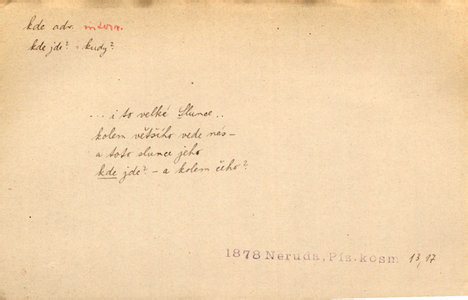 kde adv. interr.
kde jde? - kudy?
... i to velké Slunce ..
kolem většího vede nás -
a toto slunce jeho
kde jde? - a kolem čeho?
1878 Neruda, Pís. kosm 13, 17